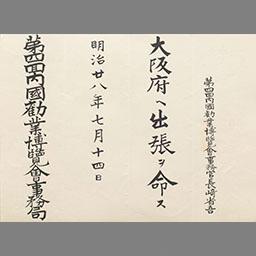 第四回内國勸業博覽會事務官長崎省吾
大阪府ヘ出張ヲ命ス
明治廿八年七月十四日
第四回內國勸業博覽會事務局